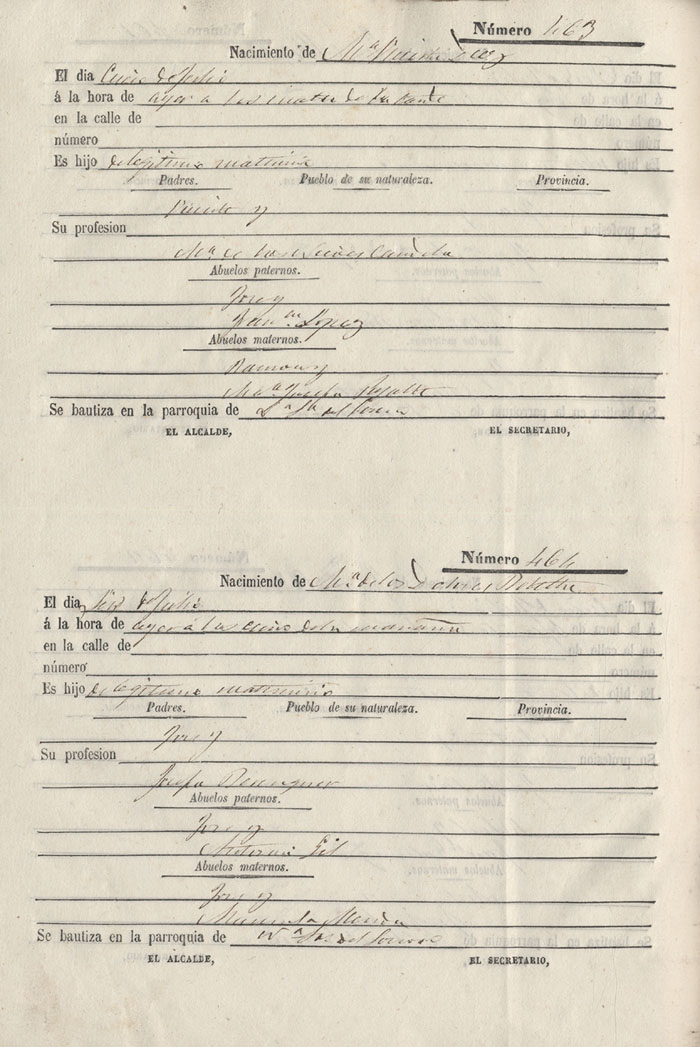 Número 463
Nacimiento de Mª
El dia Cinco de Julio
á la hora de ayer a las cuatro de la tarde
en la calle de
número
Es hijo de legitimo matrimonio
Padres. Pueblo de su naturaleza. Provincia.
Vicente y
Su profesion
Mª de los
Abuelos paternos.
Jose y
López
Abuelos maternos.
Ramon y
Mª Josefa
Se bautiza en la parroquia de
EL ALCALDE, EL SECRETARIO,
Número 464
Nacimiento de Mª de los Dolores
El dia Seis de Julio
á la hora de ayer a las cinco de la mañana
en la calle de
número
Es hijo de legitimo matrimonio
Padres. Pueblo de su naturaleza. Provincia.
Jose y
Su profesion
Josefa Berenguer
Abuelos paternos.
Jose y
Antonia Gil
Abuelos maternos.
Jose y
Manuela
Se bautiza en la parroquia de
EL ALCALDE, EL SECRETARIO,